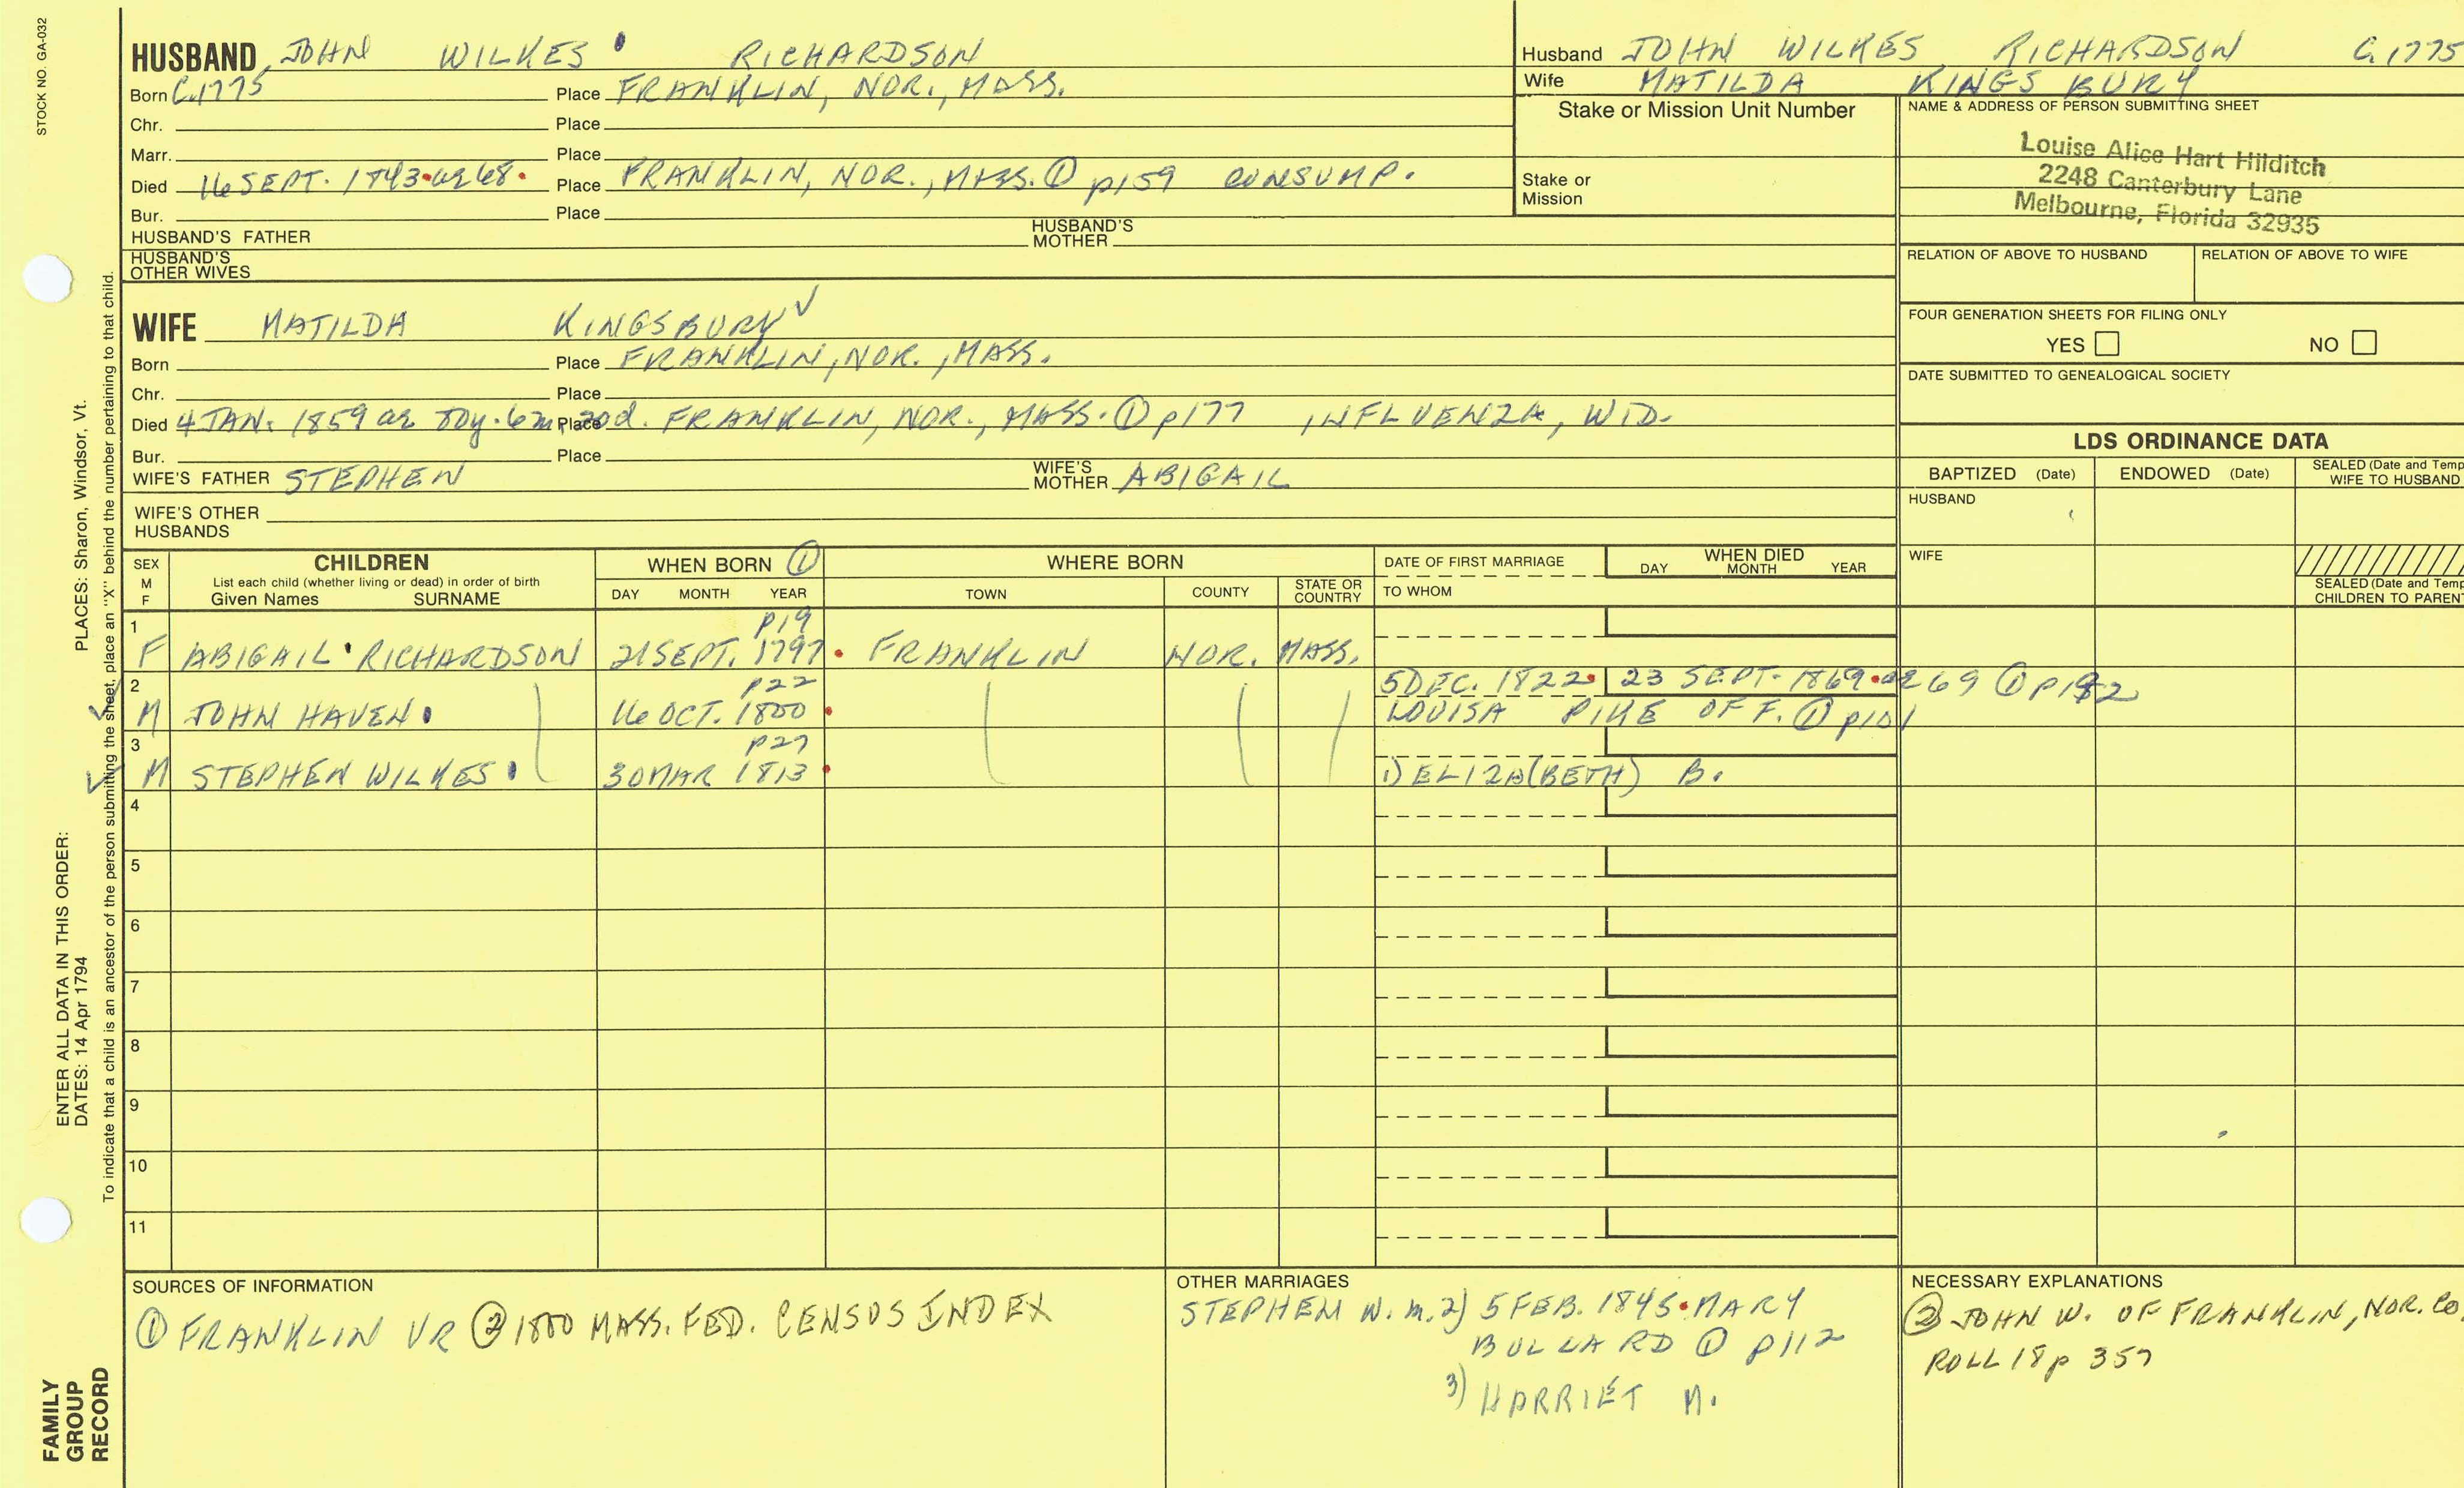 STOCK NO. GA-032
HUSBAND JOHN WILKES RICHARDSON
Born C.1775 Place FRANKLIN, NOR., MASS.
Chr. Place
Marr. Place
Died 16 SEPT. 1843 ae 68. Place FRANKLIN, NOR., MASS. ① p159 CONSUMP.
Bur. Place
HUSBAND'S FATHER HUSBAND'S MOTHER
HUSBAND'S OTHER WIVES
Husband JOHN WILKES RICHARDSON C.1775
Wife MATILDA KINGSBURY
Stake or Mission Unit Number
Stake or Mission
NAME & ADDRESS OF PERSON SUBMITTING SHEET
Louise Alice Hart Hilditch
2248 Canterbury Lane
Melbourne, Florida 32935
RELATION OF ABOVE TO HUSBAND RELATION OF ABOVE TO WIFE
FOUR GENERATION SHEETS FOR FILING ONLY
YES NO
DATE SUBMITTED TO GENEALOGICAL SOCIETY
WIFE MATILDA KINGSBURY
Born Place FRANKLIN, NOR., MASS.
Chr. Place
Died 4 JAN. 1859 ae 6m, 20d. Place FRANKLIN, NOR., MASS. ① p177 INFLUENZA, WID.
Bur. Place
WIFE'S FATHER STEPHEN WIFE'S MOTHER ABIGAIL
WIFE'S OTHER HUSBANDS
LDS ORDINANCE DATA
BAPTIZED (Date) ENDOWED (Date) SEALED (Date and Temp
WIFE TO HUSBAND
HUSBAND
WIFE
SEALED (Date and Temp
CHILDREN TO PAREN
SEX M F
CHILDREN
List each child (whether living or dead) in order of birth
Given Names SURNAME
WHEN BORN ①
DAY MONTH YEAR
WHERE BORN
TOWN COUNTY STATE OR COUNTRY
DATE OF FIRST MARRIAGE
TO WHOM
WHEN DIED
DAY MONTH YEAR
1 p19
F ABIGAIL RICHARDSON 21 SEPT. 1797 FRANKLIN NOR. MASS.
2 p22 5 DEC. 1822 23 SEPT. 1869 ae 69 ① p192
M JOHN HAVEN 16 OCT. 1800 LOUISA PIKE OF F. ① p101
3 p27
M STEPHEN WILKES 30 MAR 1813 1) ELIZA(BETH) B.
4
5
6
7
8
9
10
11
SOURCES OF INFORMATION
① FRANKLIN VR ② 1800 MASS. FED. CENSUS INDEX
OTHER MARRIAGES
STEPHEN W. m. 2) 5 FEB. 1845 MARY
BULLARD ① p112
3) HARRIET M.
NECESSARY EXPLANATIONS
② JOHN W. OF FRANKLIN, NOR. Co.
ROLL 18 p 357
PLACES: Sharon, Windsor, Vt.
ENTER ALL DATA IN THIS ORDER:
DATES: 14 Apr 1794
To indicate that a child is an ancestor of the person submitting the sheet, place an "X" behind the number pertaining to that child.
FAMILY
GROUP
RECORD